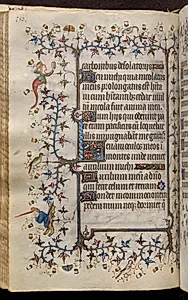 carbonibus desolatoriis
eu michi quia incolatus
meus prolongatus est habi
taui cum habitantibus cedar mul
tum incola fuit anima mea
um hijs qui oderunt pa
cem eram pacificus cum loquebar
illis impugnabant me gratis
euaui oculos meos i
montes unde ueniet
auxilium michi
uxilium meum a domi
no qui fecit celum et terram
on det in commotionem
pedem tuum neque dormitet q